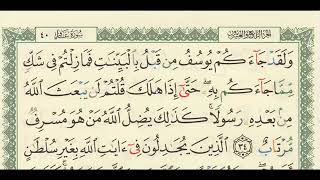 سُورَةُ غَافِرٍ ٤٠
وَلَقَدْ جَآءَكُمْ يُوسُفُ مِن قَبْلُ بِٱلْبَيِّنَٰتِ فَمَا زِلْتُمْ فِى شَكٍّ
مِّمَّا جَآءَكُم بِهِۦ حَتَّىٰٓ إِذَا هَلَكَ قُلْتُمْ لَن يَبْعَثَ ٱللَّهُ
مِنۢ بَعْدِهِۦ رَسُولًا ۚ كَذَٰلِكَ يُضِلُّ ٱللَّهُ مَنْ هُوَ مُسْرِفٌ
مُّرْتَابٌ ٣٤ ٱلَّذِينَ يُجَٰدِلُونَ فِىٓ ءَايَٰتِ ٱللَّهِ بِغَيْرِ سُلْطَٰنٍ